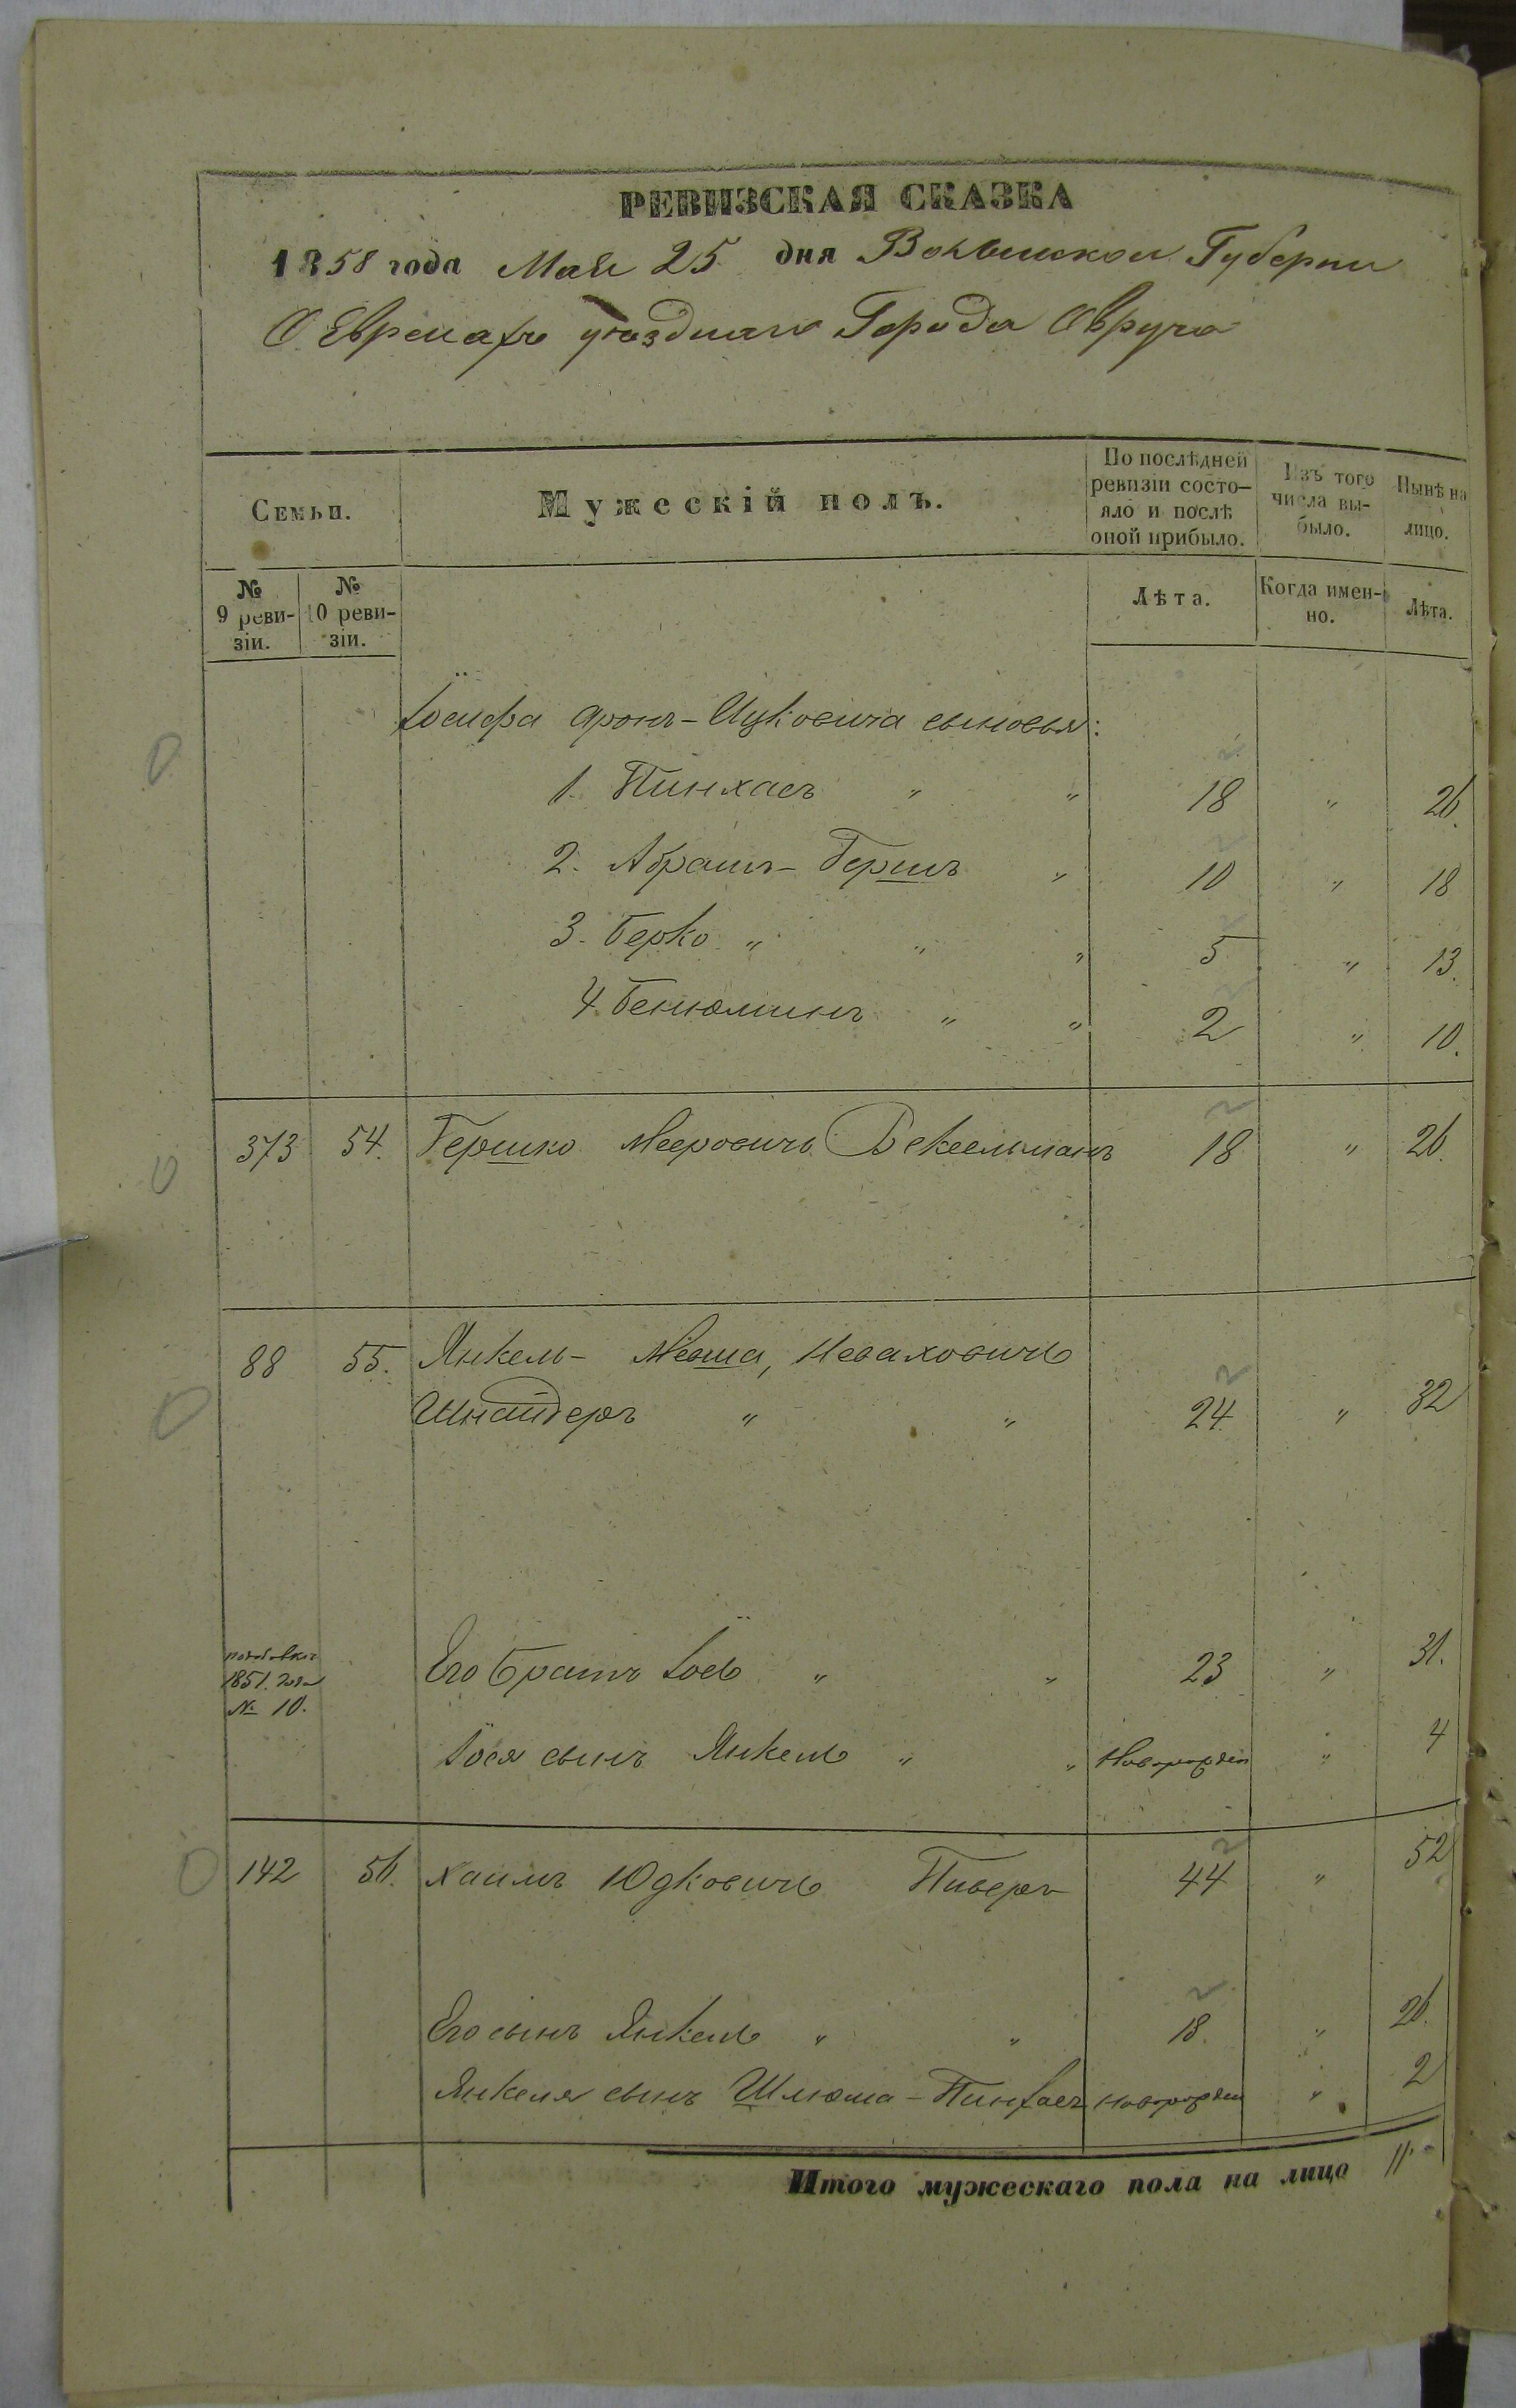 РЕВИЗСКАЯ СКАЗКА
1858 года Мая 25 дня Волынской Губернии
О Евреяхъ уѣзднаго Города Овруча
Семьи.
Мужескій полъ.
По послѣдней ревизіи состо-
яло и послѣ
оной прибыло.
Изъ того
числа вы-
было.
Нынѣ на
лицо.
№
9 реви-
зіи.
№
10 реви-
зіи.
Лѣта.
Когда имен-
но.
Лѣта.
Іосифа Аронъ-Ицковича сыновья:
1. Пинхасъ " " 18 " 26.
2. Абрамъ-Гершъ " 10 " 18
3. Берко " " " 5 " 13.
4. Бенюминъ " " 2 " 10.
373 54. Гершко Мееровичъ 18 " 26.
88 55. Янкель-Мовша, Неваховичъ
Шнайдеръ " " 24 " 32
1851. года
№ 10.
Его братъ Іось " " 23 " 31.
Іося сынъ Янкель " " Новорожден " 4
142 56. Хаимъ Юдковичъ Пиверъ 44 " 52
Его сынъ Янкель " " 18. " 26.
Янкеля сынъ Шлюма-Пинхасъ новорожден " 2
Итого мужескаго пола на лицо 11.